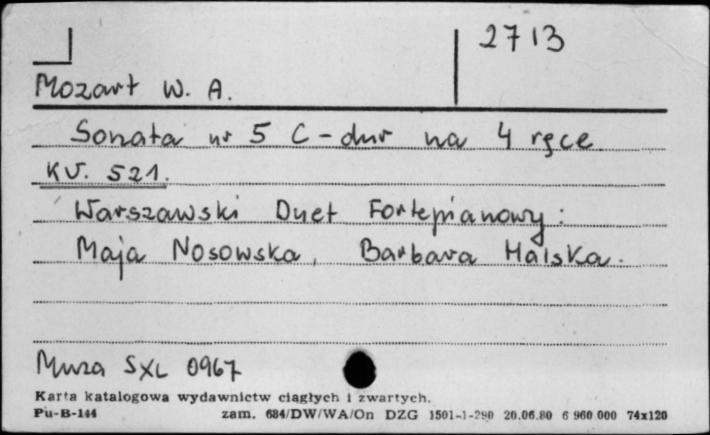 2713
Mozart W. A.
Sonata nr 5 C-dur na 4 ręce
KV. 521.
Warszawski Duet Fortepianowy:
Maja Nosowska, Barbara Halska.
Muza SXL 0967
Karta katalogowa wydawnictw ciągłych i zwartych.
Pu-B-144 zam. 684/DW/WA/On DZG 1501-1-290 20.06.80 6 960 000 74x120